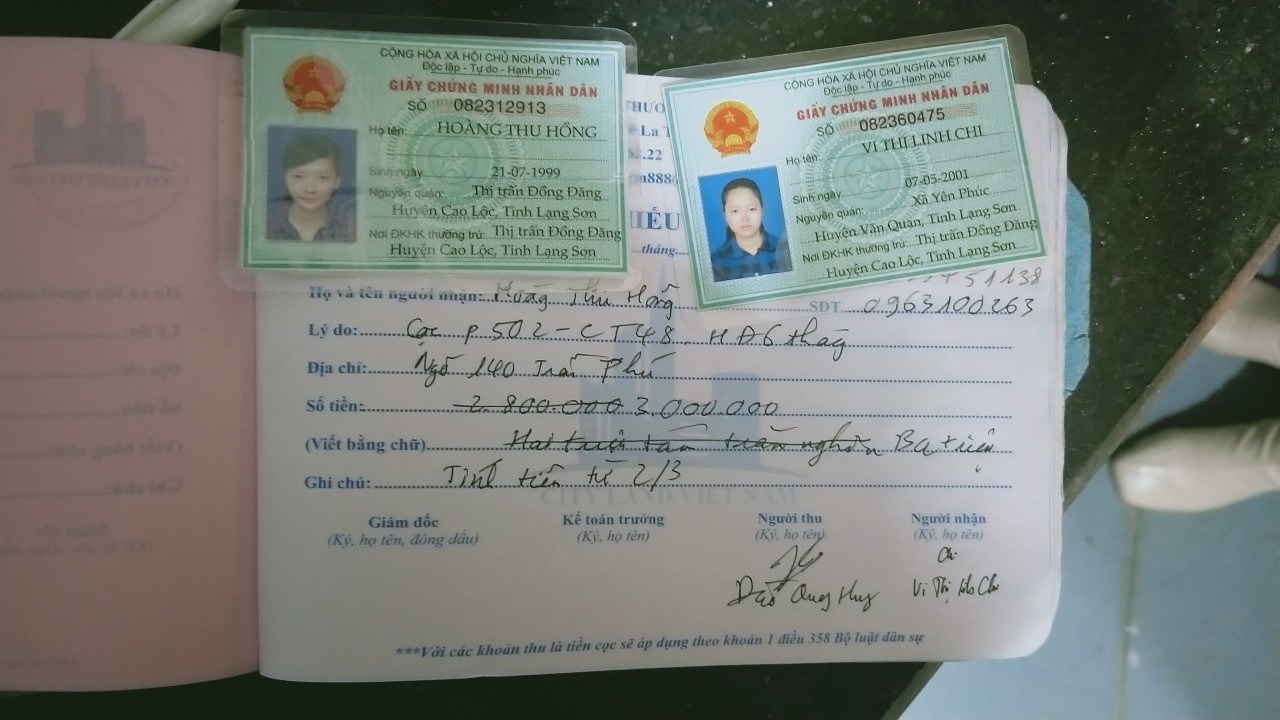 CỘNG HÒA XÃ HỘI CHỦ NGHĨA VIỆT NAM
Độc lập - Tự do - Hạnh phúc
GIẤY CHỨNG MINH NHÂN DÂN
SỐ 082312913
Họ tên: HOÀNG THU HỒNG
Sinh ngày 21-07-1999
Nguyên quán: Thị trấn Đồng Đăng
Huyện Cao Lộc, Tỉnh Lạng Sơn
Nơi ĐKHK thường trú: Thị trấn Đồng Đăng
Huyện Cao Lộc, Tỉnh Lạng Sơn
CỘNG HÒA XÃ HỘI CHỦ NGHĨA VIỆT NAM
Độc lập - Tự do - Hạnh phúc
GIẤY CHỨNG MINH NHÂN DÂN
SỐ 082360475
Họ tên: VI THỊ LINH CHI
Sinh ngày 07-05-2001
Nguyên quán: Xã Yên Phúc
Huyện Văn Quan, Tỉnh Lạng Sơn
Nơi ĐKHK thường trú: Thị trấn Đồng Đăng
Huyện Cao Lộc, Tỉnh Lạng Sơn
tháng
51138
Họ và tên người nhận: Hoàng Thu Hồng SĐT 0963100263
Lý do: Cọc P502 - CT48. HĐ 6 tháng
Địa chỉ: Ngõ 140 Trần Phú
Số tiền: 2.800.000 3.000.000
(Viết bằng chữ) Hai triệu tám trăm nghìn Ba triệu
Ghi chú: Tính tiền từ 2/3
CITY LAND VIET NAM
Giám đốc Kế toán trưởng Người thu Người nhận
(Ký, họ tên, đóng dấu) (Ký, họ tên) (Ký, họ tên) (Ký, họ tên)
Chi
Đào Quang Huy Vi Thị Linh Chi
***Với các khoản thu là tiền cọc sẽ áp dụng theo khoản 1 điều 358 Bộ luật dân sự